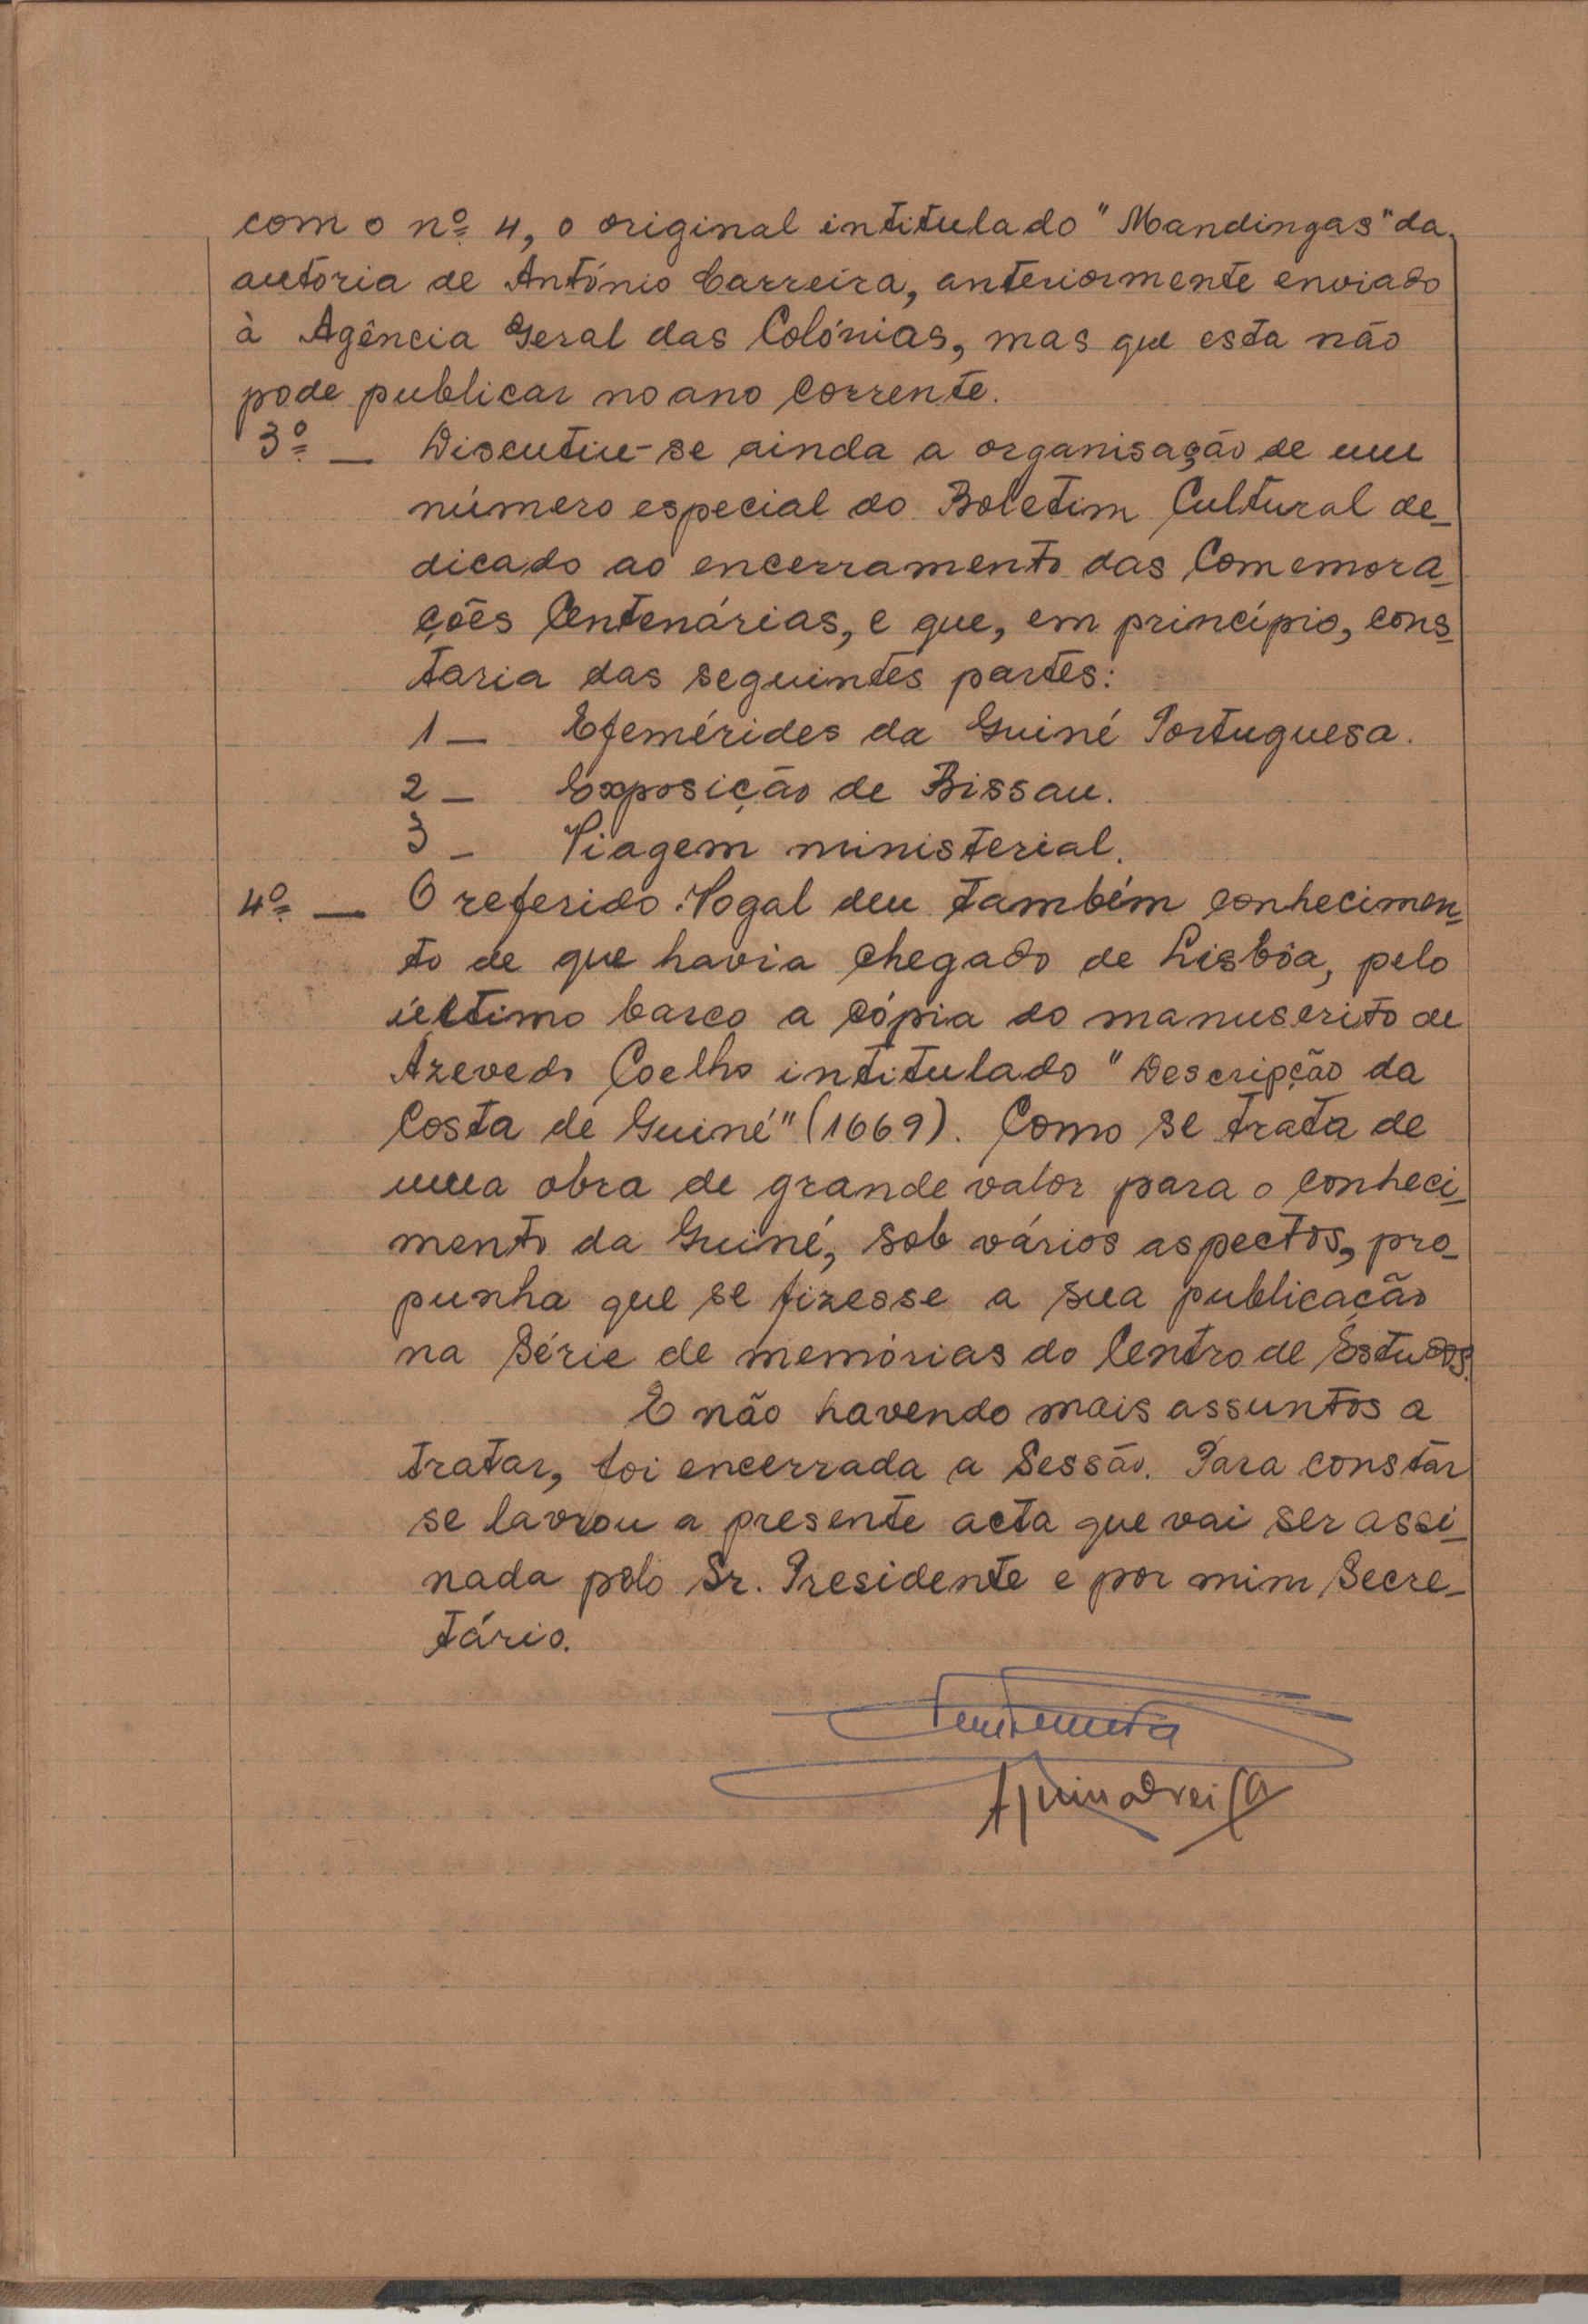 com o nº 4, o original intitulado "Mandingas" da
autoria de António Carreira, anteriormente enviado
à Agência Geral das Colónias, mas que esta não
pode publicar no ano corrente.
3º — Discutiu-se ainda a organisação de um
número especial do Boletim Cultural de-
dicado ao encerramento das Comemora-
ções Centenárias, e que, em princípio, cons-
taria das seguintes partes:
1 — Efemérides da Guiné Portuguesa.
2 — Exposição de Bissau.
3 — Viagem ministerial.
4º — O referido Vogal deu também conhecimen-
to de que havia chegado de Lisbôa, pelo
último barco a cópia do manuscrito de
Azevedo Coelho intitulado "Descripção da
Costa de Guiné" (1669). Como se trata de
uma obra de grande valor para o conheci-
mento da Guiné, sob vários aspectos, pro-
punha que se fizesse a sua publicação
na Série de memórias do Centro de Estudos.
E não havendo mais assuntos a
tratar, foi encerrada a Sessão. Para constar
se lavrou a presente acta que vai ser assi-
nada pelo Sr. Presidente e por mim Secre-
tário.